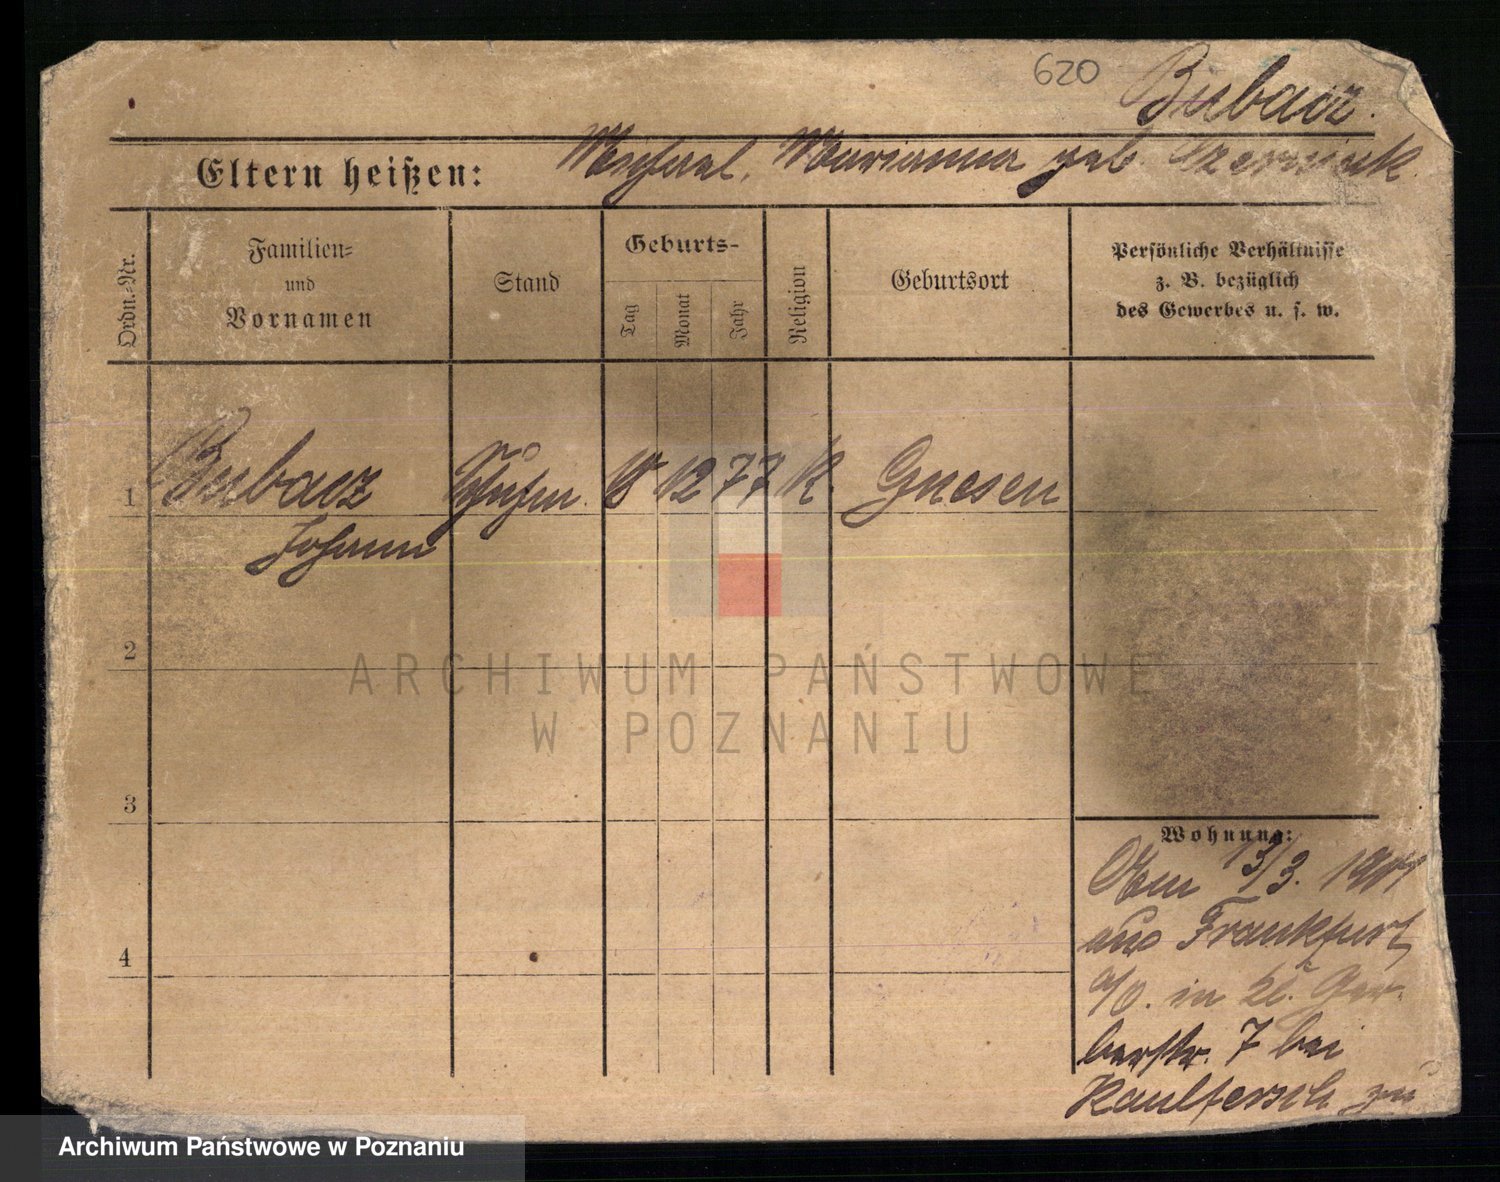 620
Bubacz.
Eltern heißen: Michael, Marianna geb. Czerniak
Ordn.-Nr.
Familien-
und
Vornamen
Stand
Geburts-
Tag
Monat
Jahr
Religion
Geburtsort
Persönliche Verhältnisse
z. B. bezüglich
des Gewerbes u. s. w.
1 Bubacz 12 77 K. Gnesen
Johann
2
3
4
Wohnung:
13/3. 1901
aus Frankfurt
a/O. in kl. Ger-
berstr. 7 bei
zu
ARCHIWUM PAŃSTWOWE
W POZNANIU
Archiwum Państwowe w Poznaniu